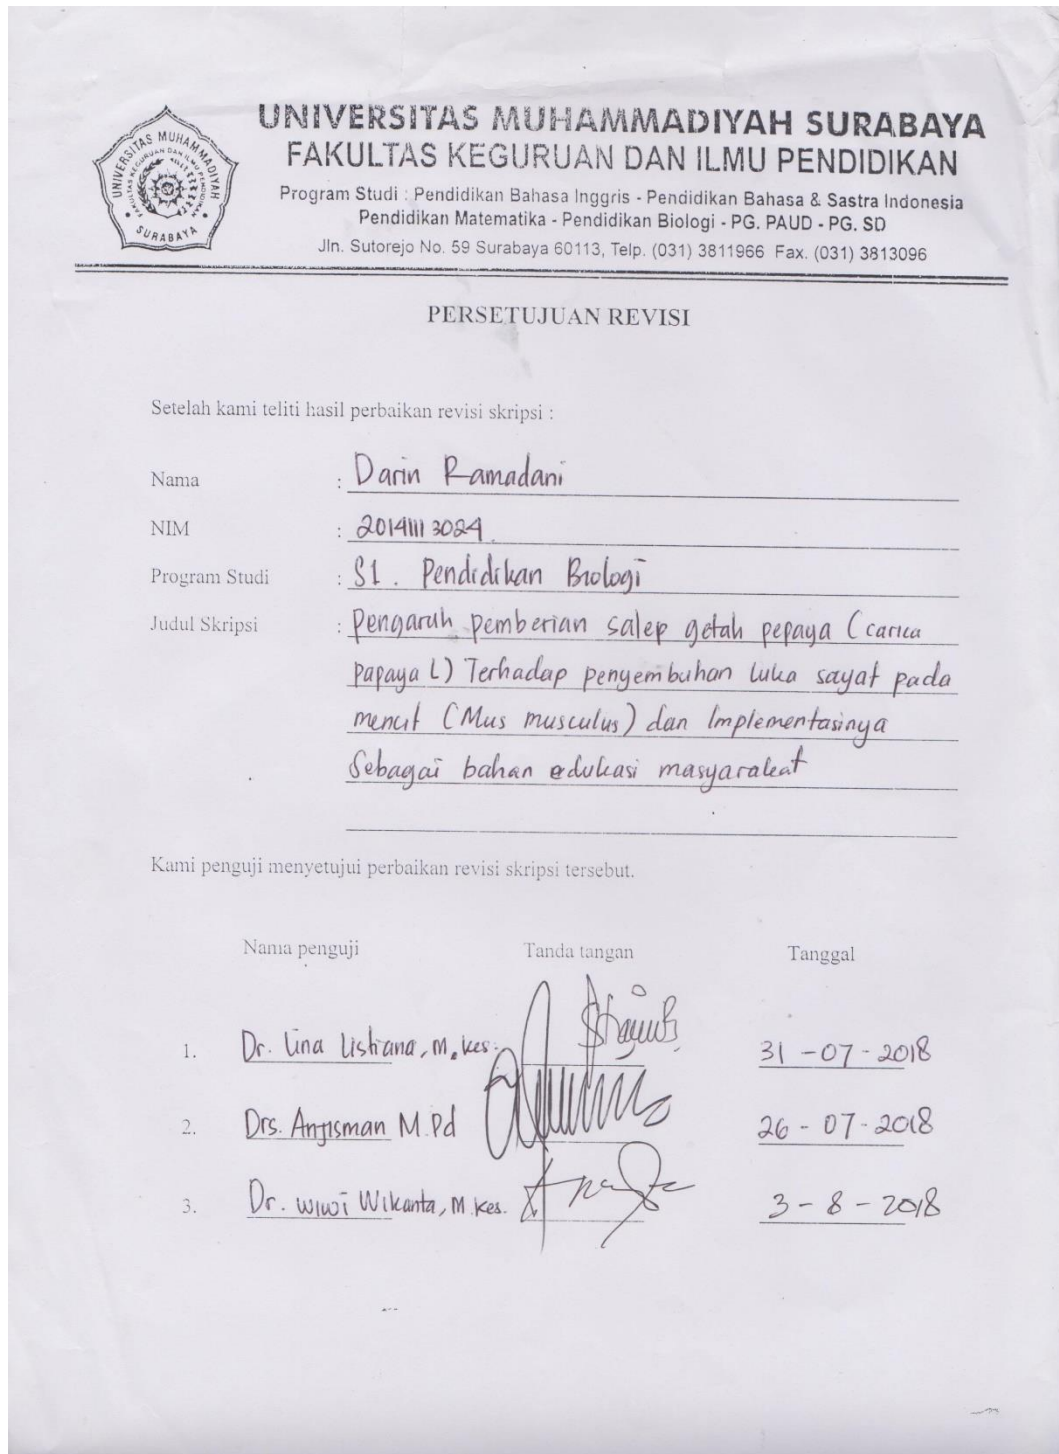 UNIVERSITAS MUHAMMADIYAH SURABAYA
FAKULTAS KEGURUAN DAN ILMU PENDIDIKAN
Program Studi : Pendidikan Bahasa Inggris - Pendidikan Bahasa & Sastra Indonesia
Pendidikan Matematika - Pendidikan Biologi - PG. PAUD - PG. SD
Jln. Sutorejo No. 59 Surabaya 60113, Telp. (031) 3811966 Fax. (031) 3813096
UNIVERSITAS MUHAMMADIYAH
FAKULTAS KEGURUAN DAN ILMU PENDIDIKAN
SURABAYA
PERSETUJUAN REVISI
Setelah kami teliti hasil perbaikan revisi skripsi :
Nama : Darin Ramadani
NIM : 20141113024
Program Studi : S1. Pendidikan Biologi
Judul Skripsi : Pengaruh pemberian salep getah pepaya (carica
papaya L) Terhadap penyembuhan luka sayat pada
mencit (Mus musculus) dan Implementasinya
Sebagai bahan edukasi masyarakat
Kami penguji menyetujui perbaikan revisi skripsi tersebut.
Nama penguji Tanda tangan Tanggal
1. Dr. Lina Listiana, M.kes. 31-07-2018
2. Drs. M.Pd 26-07-2018
3. Dr. Wiwi Wikanta, M.kes. 3-8-2018